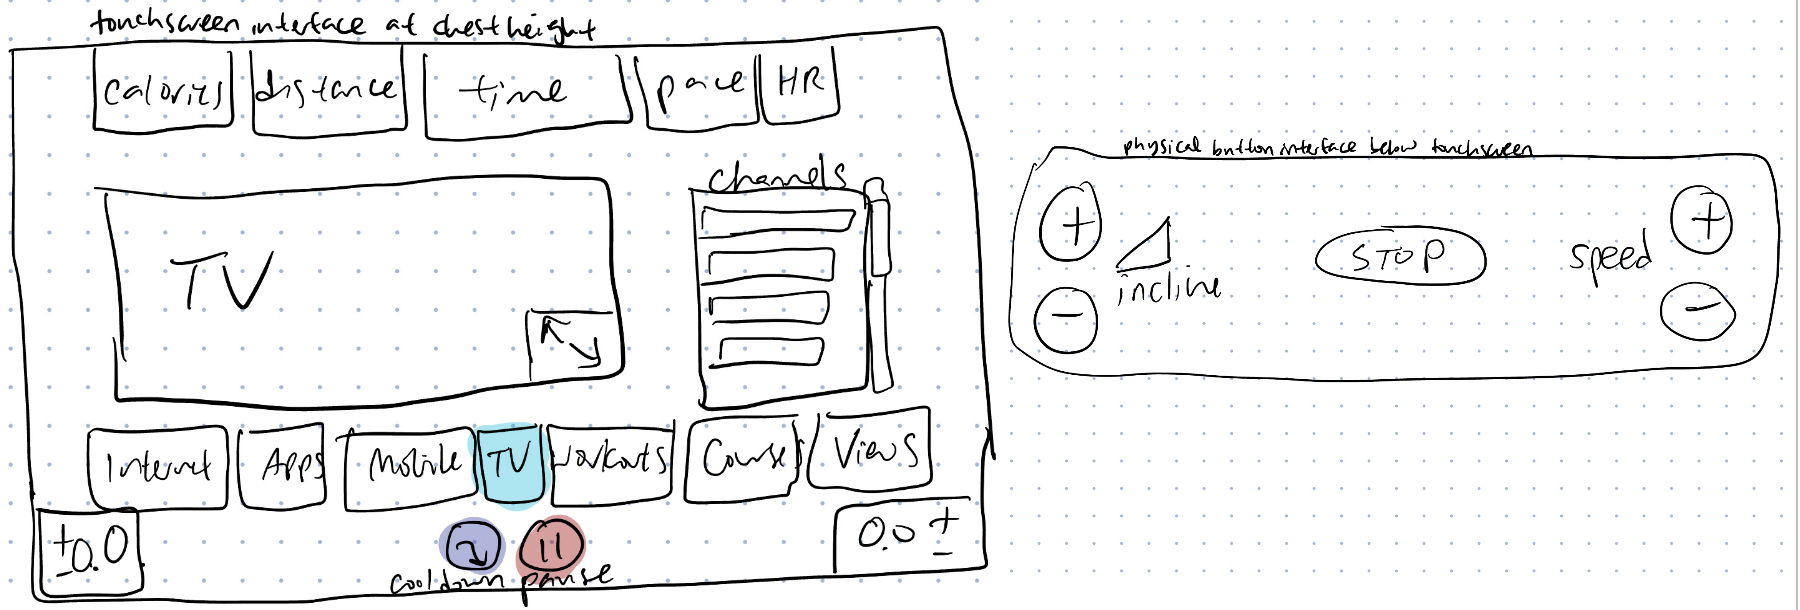 touchscreen interface at chest height
calories distance time pace HR
channels
TV
Internet Apps Mobile TV Workouts Courses Views
±0.0
0.0±
cooldown pause
physical button interface below touchscreen
+ +
incline STOP speed
- -